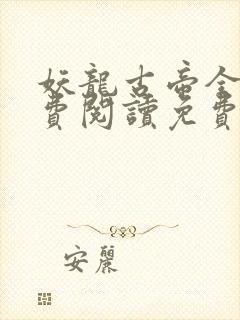 妖龍古帝全
費閱讀免費
安麗